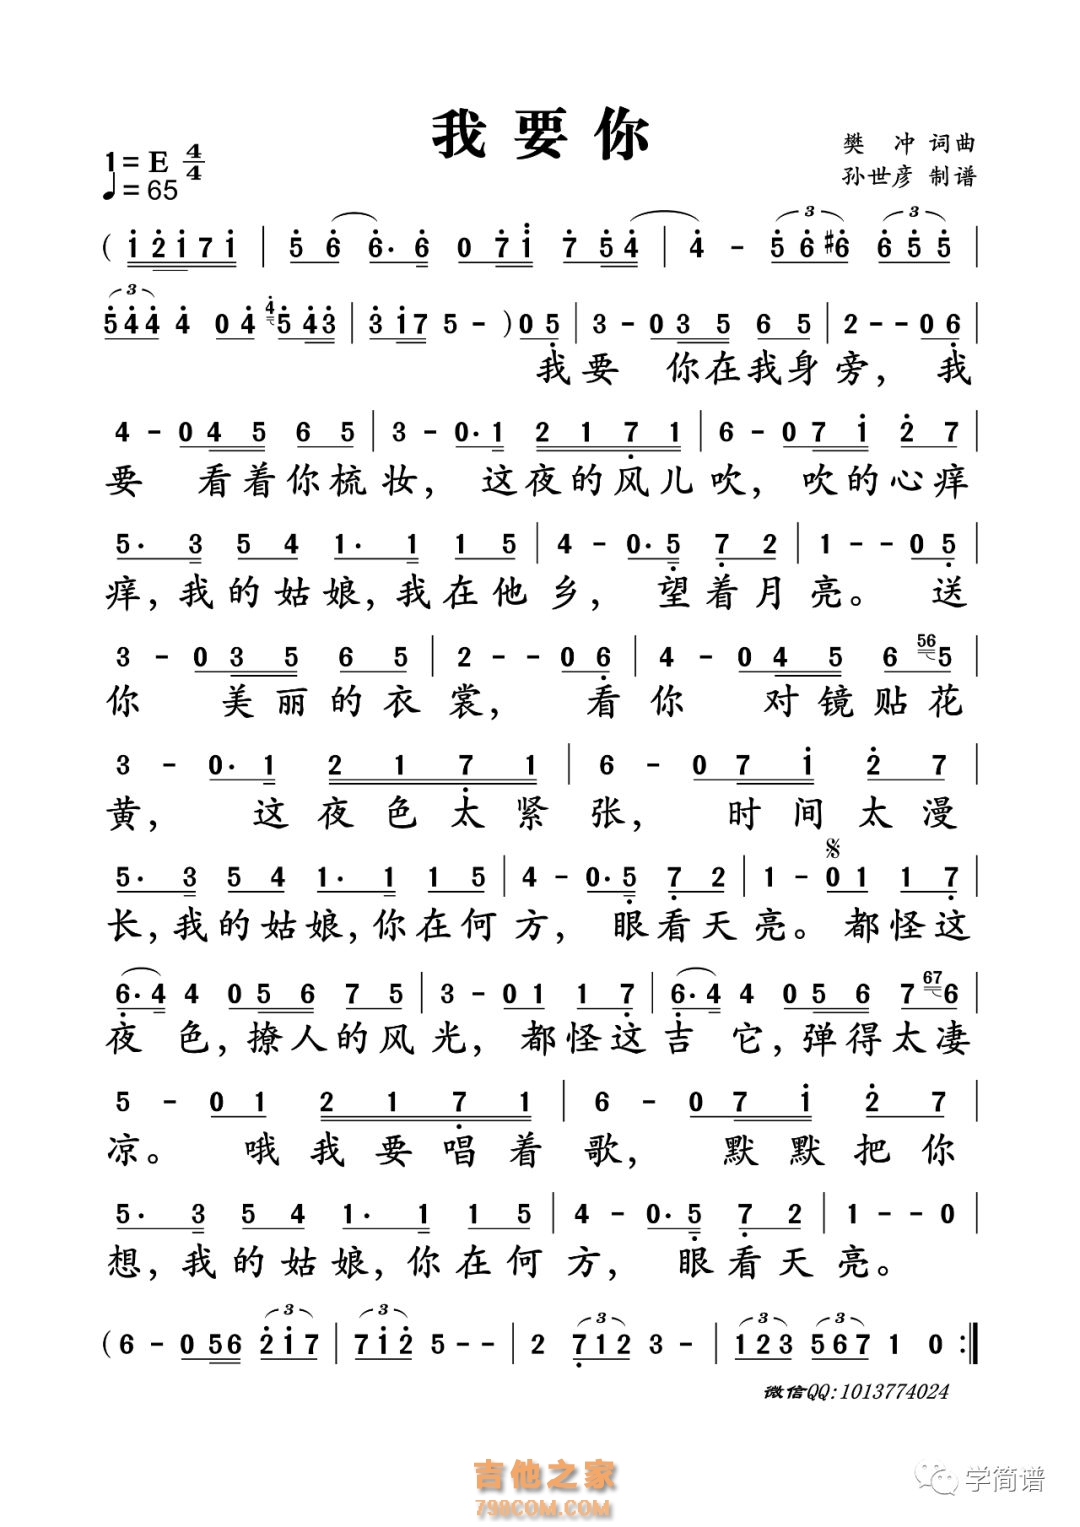 我要你
樊 冲 词曲
1=E 4/4
孙世彦 制谱
♩=65
( 1 2 1 7 1 | 5 6 6· 6 0 7 1 7 5 4 | 4 - 5 6 #6 6 5 5 |
3 3
5 4 4 4 0 4 4 5 4 3 | 3 1 7 5 - ) 0 5 | 3 - 0 3 5 6 5 | 2 - - 0 6 |
3
我要 你在我身旁，我
4 - 0 4 5 6 5 | 3 - 0· 1 2 1 7 1 | 6 - 0 7 1 2 7
要 看着你梳妆，这夜的风儿吹，吹的心痒
5· 3 5 4 1· 1 1 5 | 4 - 0· 5 7 2 | 1 - - 0 5 |
痒，我的姑娘，我在他乡，望着月亮。 送
3 - 0 3 5 6 5 | 2 - - 0 6 | 4 - 0 4 5 6 56 5
你 美丽的衣裳，看你 对镜贴花
3 - 0· 1 2 1 7 1 | 6 - 0 7 1 2 7 |
黄，这夜色太紧张，时间太漫
𝄋
5· 3 5 4 1· 1 1 5 | 4 - 0· 5 7 2 | 1 - 0 1 1 7 |
长，我的姑娘，你在何方，眼看天亮。都怪这
6· 4 4 0 5 6 7 5 | 3 - 0 1 1 7 | 6· 4 4 0 5 6 7 67 6
夜色，撩人的风光，都怪这吉它，弹得太凄
5 - 0 1 2 1 7 1 | 6 - 0 7 1 2 7 |
凉。 哦我要唱着歌，默默把你
5· 3 5 4 1· 1 1 5 | 4 - 0· 5 7 2 | 1 - - 0
想，我的姑娘，你在何方，眼看天亮。
3 3 3 3 3
( 6 - 0 5 6 2 1 7 | 7 1 2 5 - - | 2 7 1 2 3 - | 1 2 3 5 6 7 1 0 :||
微信QQ:1013774024
吉他之家
798COM.COM
学简谱